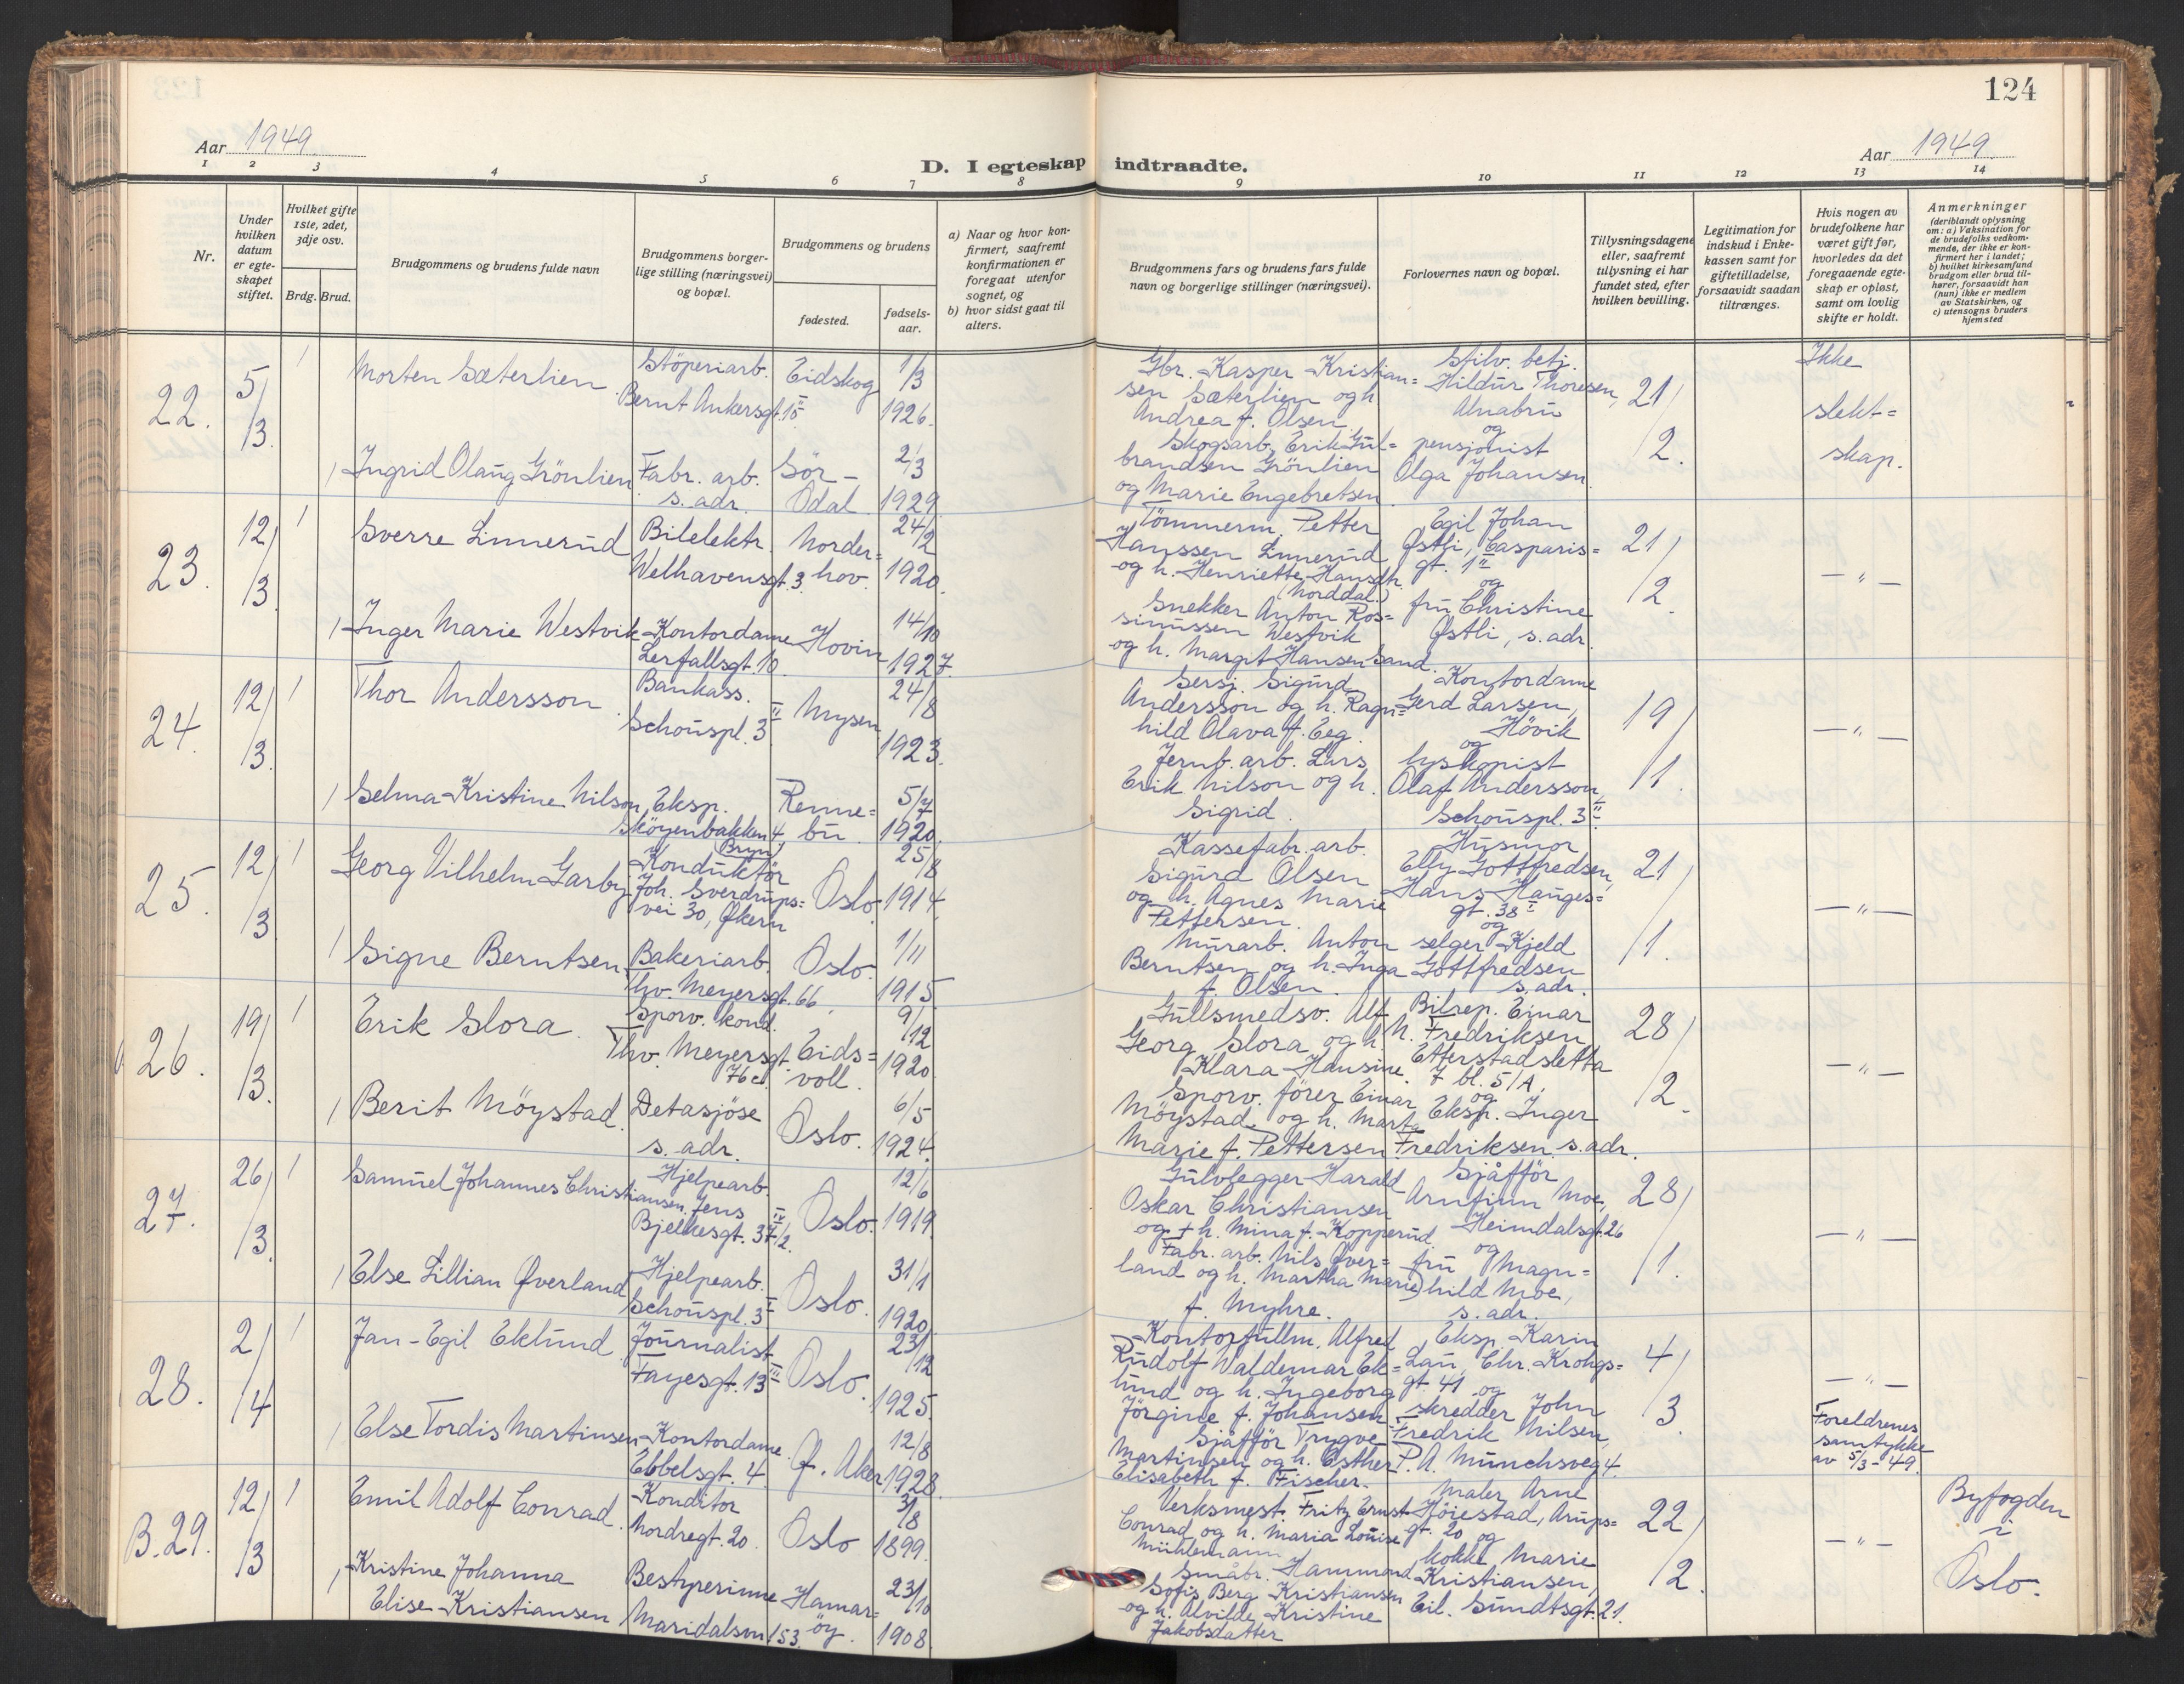 124
Aar 1949.
D. I egteskap indtraadte.
Aar 1949.
1 2 3 4 5 6 7 8 9 10 11 12 13 14
Nr.
Under hvilken datum er egteskapet stiftet.
Hvilket gifte 1ste, 2det, 3dje osv.
Brdg. Brud.
Brudgommens og brudens fulde navn
Brudgommens borgerlige stilling (næringsvei) og bopæl.
Brudgommens og brudens
fødested.
fødselsaar.
a) Naar og hvor konfirmert, saafremt konfirmationen er foregaat utenfor sognet, og
b) hvor sidst gaat til alters.
Brudgommens fars og brudens fars fulde navn og borgerlige stillinger (næringsvei).
Forlovernes navn og bopæl.
Tillysningsdagene eller, saafremt tillysning ei har fundet sted, efter hvilken bevilling.
Legitimation for indskud i Enkekassen samt for giftetilladelse, forsaavidt saadan tiltrænges.
Hvis nogen av brudefolkene har været gift før, hvorledes da det foregaaende egteskap er opløst, samt om lovlig skifte er holdt.
Anmerkninger
(deriblandt oplysning om: a) Vaksination for de brudefolks vedkommende, der ikke er konfirmert her i landet; b) hvilket kirkesamfund brudgom eller brud tilhører, forsaavidt han (hun) ikke er medlem av Statskirken, og c) utensogns bruders hjemsted
22. 5/3. 1
Morten Sæterlien
Stöperiarb.
Bernt Ankersgt. 15 II
Eidskog
1/3
1926.
Gbr. Kasper Kristian=
sen Sæterlien og h
Andrea f. Olsen
Stilv. betj.
Hildur Thoresen,
Alnabru
og
21/2.
Ikke
slekt=
skap.
1 Ingrid Olaug Grönlien
Fabr. arb.
s. adr.
Sör-
Odal
2/3
1929.
Skogsarb. Erik Gul=
brandsen Grönlien
og Marie Engebretsen
pensjonist
Olga Johansen
23. 12/3. 1
Sverre Linnerud
Bilelektr.
Welhavensgt. 3
Norder=
hov
24/2
1920.
Tömmerm. Petter
Hanssen Linnerud
og h. Henriette Hansdtr.
(Norddal)
Egil Johan
Østli, Casparis=
gt. 1 II
og
21/2.
— " —
1 Inger Marie Westvik
Kontordame
Lerfallsgt. 10
Hovin
14/10
1927.
Snekker Anton Ros=
sinussen Westvik
og h. Margit Hansen Sand.
fru Christine
Østli, s. adr.
24. 12/3. 1
Thor Andersson
Bankass.
Schouspl. 3 II
Mysen
24/8
1923.
Sersj. Sigurd
Andersson og h. Ragn=
hild Olava f. Eeg.
Kontordame
Gerd Larsen,
Hövik
og
19/1.
— " —
1 Selma Kristine Nilson
Eksp.
Skøyenbakken 4
Bryn
Renne=
bu
5/7
1920.
Jernb. arb. Lars
Erik Nilson og h.
Sigrid.
lyskopist
Olaf Andersson,
Schouspl. 3 II
25. 12/3. 1
Georg Vilhelm Garby
Konduktör
Joh. Sverdrups=
vei 30, Økern
Oslo.
25/8
1914.
Kassefabr. arb.
Sigurd Olsen
og h. Agnes Marie
Pettersen.
Husmor
Elly Gottfredsen,
Hans Hauges=
gt. 38 I
og
21/1.
— " —
1 Signe Berntsen
Bakeriarb.
Thv. Meyersgt. 66
Oslo.
1/11
1915
Murarb. Anton
Berntsen og h. Inga
f. Olsen
selger Kjeld
Gottfredsen
s. adr.
26. 19/3. 1
Erik Slora.
Sporv. kond.
Thv. Meyersgt.
76 c
Eids=
voll.
9/12
1920.
Gullsmedsv. Alf
Georg Slora og h.
Klara Hansine.
Bilrep. Einar
H. Fredriksen
Etterstadsletta
7 bl. 5/A.
og
28/2.
— " —
1 Berit Möystad.
Detasjöse
s. adr.
Oslo.
6/5
1924.
Sporv. förer Einar
Möystad og h. Marta
Marie f. Pettersen
Eksp. Inger
Fredriksen s. adr.
27. 26/3. 1
Samuel Johannes Christiansen.
Hjelpearb.
Jens
Bjelkesgt. 37 IV/2.
Oslo.
12/6
1919.
Gulvlegger Harald
Oskar Christiansen
og + h. Mina f. Kopperud.
Sjåfför
Arnfinn Moe,
Heimdalsgt. 26
og
28/1.
— " —
1 Else Lillian Øverland
Hjelpearb.
Schouspl. 3 I
Oslo.
31/1
1920.
Fabr. arb. Nils Øver=
land og h. Martha Marie
f. Myhre.
fru Magn=
hild Moe,
s. adr.
28. 2/4 1
Jan-Egil Eklund
Journalist
Fayesgt. 13 III
Oslo.
23/12
1925.
Kontorfullm. Alfred
Rudolf Waldemar Ek=
lund og h. Ingeborg
Jörgine f. Johansen
Eksp. Karin
Lau, Chr. Krohgs=
gt. 41 og
4/3.
— " —
1 Else Tordis Martinsen
Kontordame
Ebbelsgt. 4
Ø. Aker
12/8
1928.
Sjåfför Trygve
Martinsen og h. Esther
Elisabeth f. Fischer.
skredder John
Fredrik Nilsen,
P. A. Munchsveg 4.
Foreldrenes
samtykke
av 5/3-49.
B. 29. 12/3 1
Emil Adolf Conrad.
Konditor
Nordregt. 20.
Oslo
3/8
1899.
Verksmest. Fritz Ernst
Conrad og h. Maria Louise
Mühlemann
Maler Arne
Höiestad, Arups=
gt. 20 og
22/2.
— " —
Byfogden
i
Oslo.
1 Kristine Johanna
Elise Kristiansen
Bestyrerinne
Maridalsvn. 153
Hamar=
öy.
23/10
1908.
Småbr. Hammond
Sofis Berg Kristiansen
og h. Alvilde Kristine
Jakobsdatter
kokke Marie
Kristiansen,
Eil. Sundtsgt. 21.